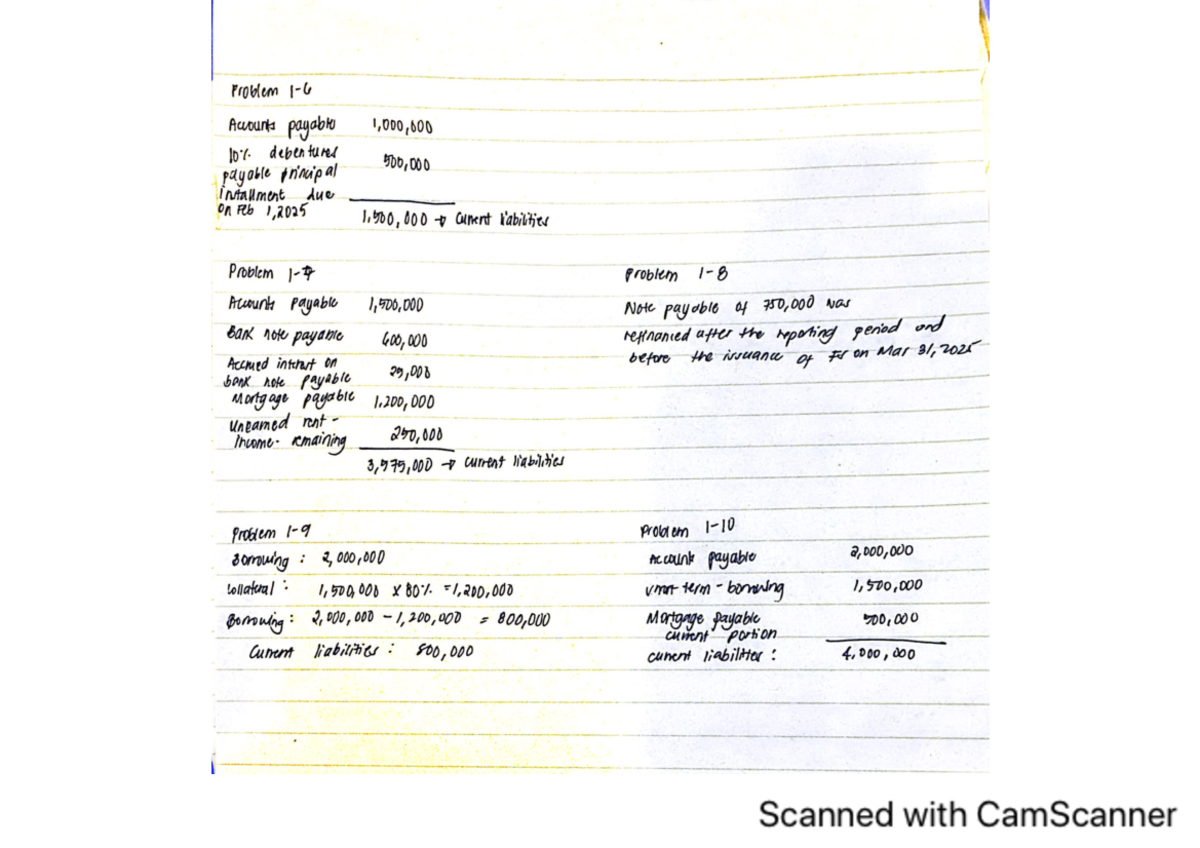 Problem 1-6
Accounts payable 1,000,000
10% debentures
payable principal 500,000
installment due
on Feb 1, 2025 1,500,000 → current liabilities
Problem 1-7
Accounts payable 1,500,000
Bank note payable 600,000
Accrued interest on
bank note payable 25,000
Mortgage payable 1,200,000
Unearned rent -
Income - remaining 250,000
3,575,000 → current liabilities
Problem 1-8
Note payable of 750,000 was
refinanced after the reporting period and
before the issuance of FS on Mar 31, 2025
Problem 1-9
Borrowing : 2,000,000
Collateral : 1,500,000 x 80% = 1,200,000
Borrowing : 2,000,000 - 1,200,000 = 800,000
Current liabilities : 800,000
Problem 1-10
Account payable 2,000,000
term - borrowing 1,500,000
Mortgage payable 500,000
current portion
current liabilities : 4,000,000
Scanned with CamScanner